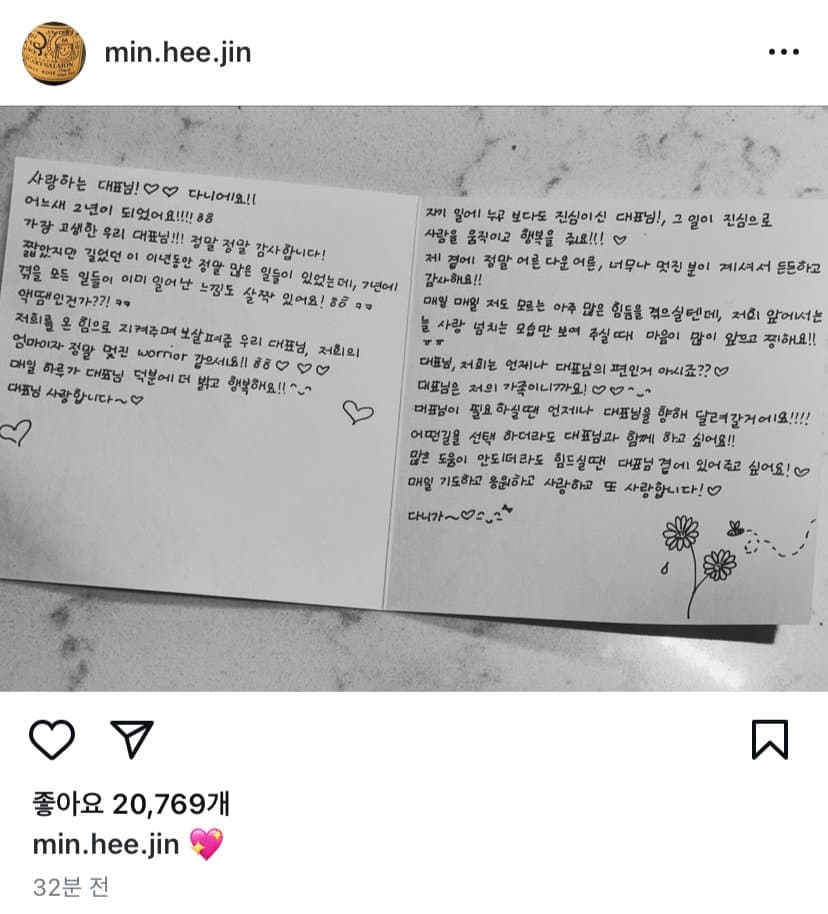 min.hee.jin
사랑하는 대표님!♡♡ 다니에요!!
어느새 2년이 되었어요!!!! ㅎㅎ
가장 고생한 우리 대표님!!! 정말 정말 감사합니다!
짧았지만 길었던 이 이년동안 정말 많은 일들이 있었는데, 7년에
겪을 모든 일들이 이미 일어난 느낌도 살짝 있어요! ㅎㅎ ㅋㅋ
액땜인건가??! ㅋㅋ
저희를 온 힘으로 지켜주며 보살펴준 우리 대표님, 저희의
엄마이자 정말 멋진 worrior 같으세요!! ㅎㅎ ♡ ♡ ♡
매일 하루가 대표님 덕분에 더 밝고 행복해요!! ^-^
대표님 사랑합니다~♡
자기 일에 누구 보다도 진심이신 대표님!, 그 일이 진심으로
사람을 움직이고 행복을 줘요!!! ♡
제 곁에 정말 어른 다운 어른, 너무나 멋진 분이 계셔서 든든하고
감사해요!!
매일 매일 저도 모르는 아주 많은 힘듬을 겪으실텐데, 저희 앞에서는
늘 사랑 넘치는 모습만 보여 주실때 마음이 많이 아프고 찡해요!!
ㅠㅠ
대표님, 저희는 언제나 대표님의 편인거 아시죠??♡
대표님은 저의 가족이니까요! ♡♡^-^
대표님이 필요하실땐 언제나 대표님을 향해 달려갈거에요!!!!
어떤길을 선택 하더라도 대표님과 함께 하고 싶어요!!
많은 도움이 안되더라도 힘드실땐 대표님 곁에 있어주고 싶어요!♡
매일 기도하고 응원하고 사랑하고 또 사랑합니다!♡
다니가~♡
좋아요 20,769개
min.hee.jin 💖
32분 전